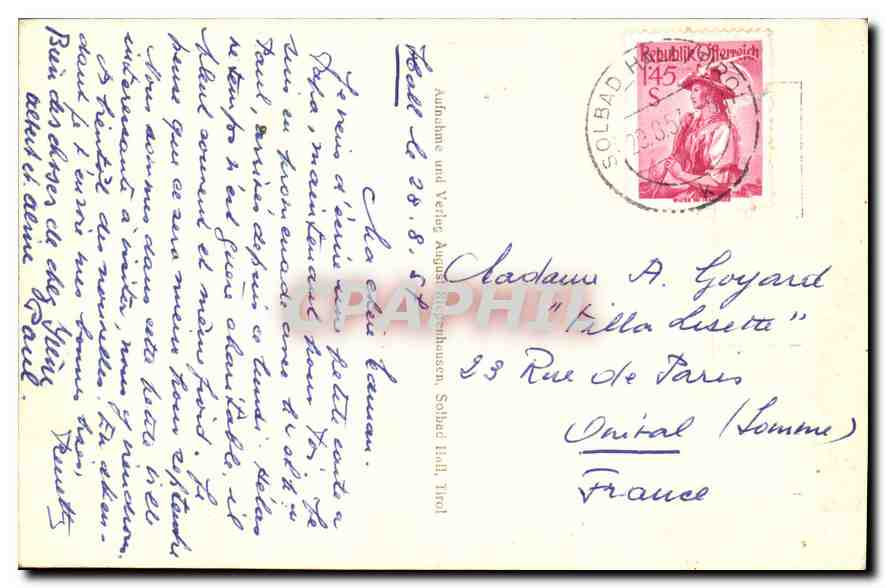 Hall le 28.8.57
Ma chère Maman.
Je viens d'écrire une petite carte à
Papa, maintenant pour toi. Je
suis en promenade avec
Paul arrivés depuis ce lundi. Hélas
le temps n'est guère charitable, il
pleut souvent et même froid. Je
pense que ce sera mieux pour septembre
Nous sommes dans cette petite ville
intéressante à visiter, nous y viendrons.
A bientôt des nouvelles. En atten-
dant je t'envoie mes bonnes bises,
Bien des choses de chez Irène
Albert et Aline Paul.
Aufnahme und Verlag August Riepenhausen, Solbad Hall, Tirol
Republik Österreich
1.45
S
SOLBAD HALL
Madame A. Goyard
"Villa Lisette"
23 Rue de Paris
Onival (Somme)
France
CPAPHIL